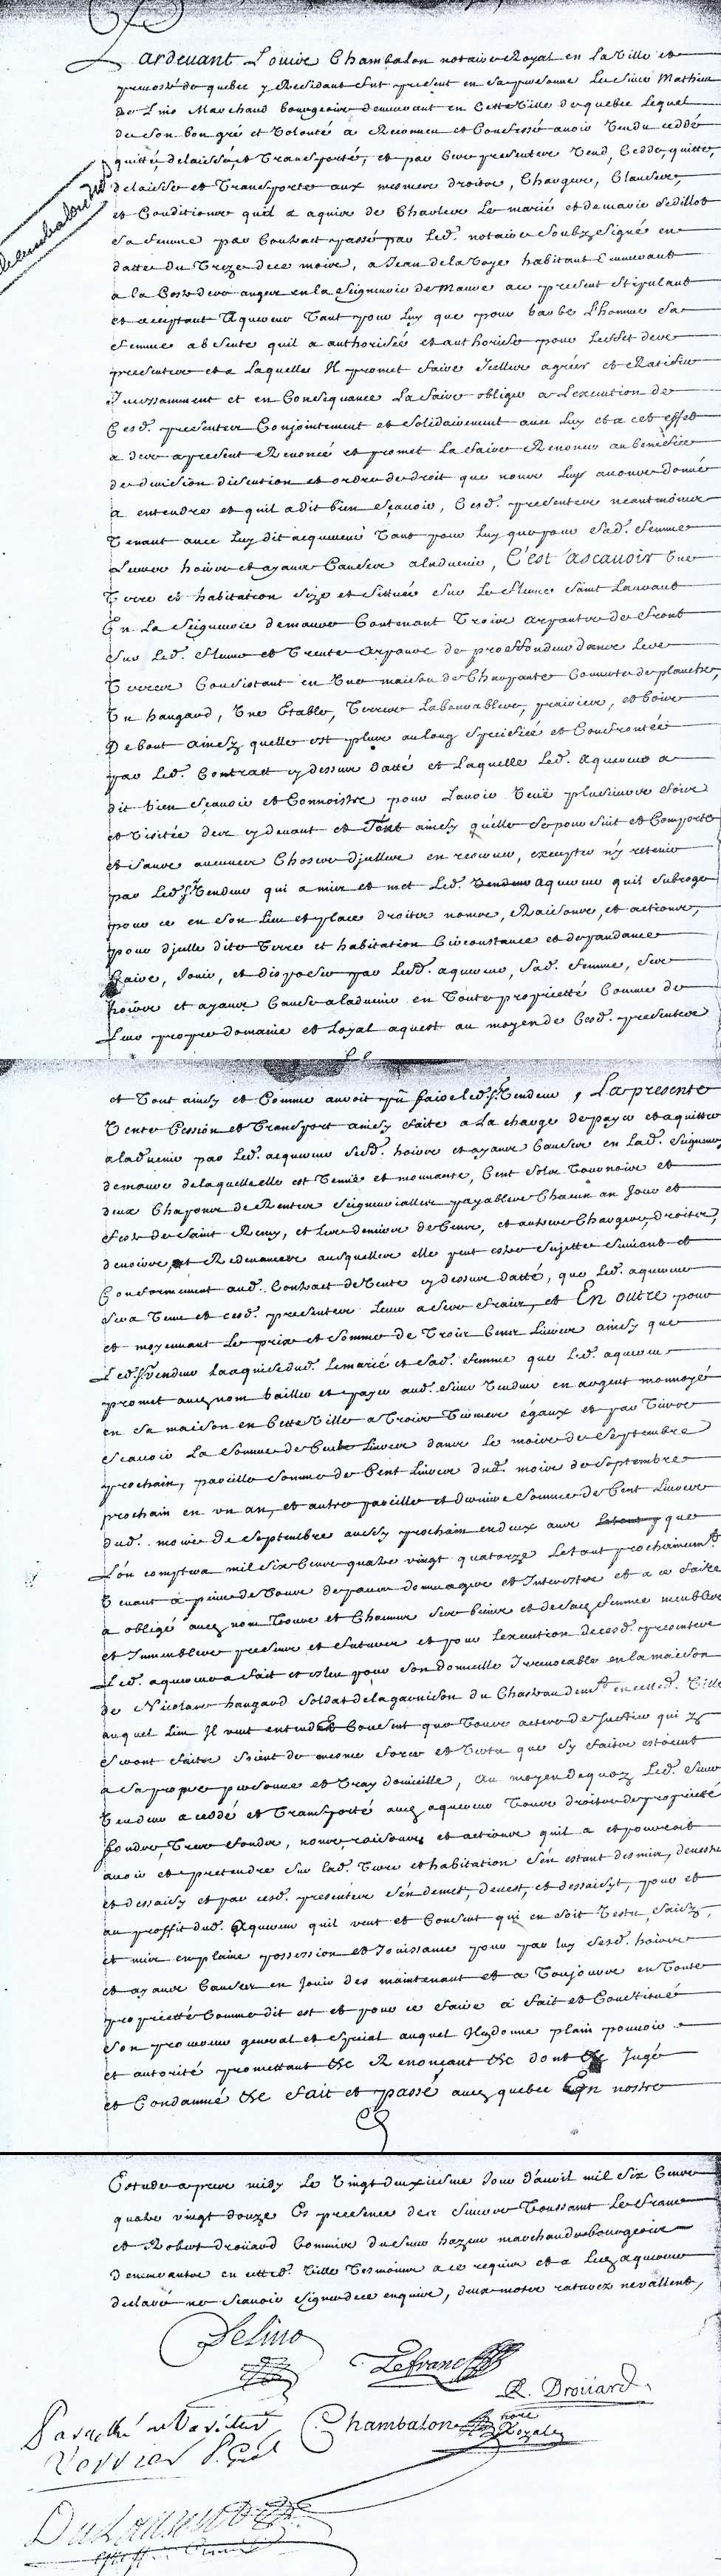 Pardevant Louis Chambalon notaire Royal en la Ville et
prevosté de quebec y Residant fut present en sa personne Le sieur Mathieu
de Lino Marchand bourgeois demeurant en Cette Ville de quebec Lequel
de son bon gré et Volonté a Reconneu et Confessé avoir Vendu ceddé
quitté delaissé et Transporté, et par Ces presentes Vend, Cedde, quitte,
delaisse et Transporte aux mesmes droits, Charges, Clauses,
et Conditions quil a aquis de Charles Le marié et de marie Sedillot
sa femme par Contract passé par Led. notaire soubz signé en
datte du Treze de ce mois, a Jean de la Voye habitant Demeurant
a la Coste des anges en la seigneurie de Maure a ce present stipulant
et acceptant Aquereur Tant pour Luy que pour barbe Lhomme sa
femme absente quil a authorisée et authorise pour Leffet des
presentes et a Laquelle Il promet faire Icelles agréer et Ratifier
Incessamment et en Consequance La faire obliger a Lexecution de
Cesd. presentes Conjointement et solidairement avec Luy et a cet effet
a des a present Renoncé et promet La faire Renoncer au benefice
de division discution et ordre de droit que nous Luy avons donné
a entendre et quil a dit bien sçavoir, Cesd. presentes neantmoins
Tenant avec Luy dit acquereur Tant pour Luy que pour sad. femme
Leurs hoirs et ayans Causes aladvenir, C'est ascavoir Une
Terre et habitation size et sittuée sur Le fleuve Saint Laurant
En La seigneurie de maure Contenant Trois arpants de front
sur Led. fleuve et Trente Arpans de proffondeur dans Les
Terres Consistant en Une maison de Charpante Couverte de planche,
Un hangard, Une Etable, Terres Labourables, prairies, et bois
De bout ainsy quelle est plus au long specifiée et Confrontée
par Led. Contract cy dessus datté et Laquelle Led. aquereur a
dit bien sçavoir et Connoistre pour Lavoir Veüe plusieurs fois
et Visitée des cy devant et Tout ainsy quelle se poursuit et Comporte
et sans aucunes Choses d'jcelles en reserver, excepter n'y retenir
par Led. sr. Vendeur qui a mis et met Led. Vendeur aquereur quil subroge
pour ce en son Lieu et place droits noms, Raisons, et actions,
pour djcelle ditte Terre et habitation Circonstance et dependance
faire, Jouir, et disposer par Led. aquereur, sad. femme, ses
hoirs et ayans Cause aladvenir en Toute proprietté Comme de
Leur propre domaine et Loyal aquest au moyen de Cesd. presentes
et Tout ainsy et Comme auroit pû faire led. sr. Vendeur, La presente
Vente Cession et Transport ainsy faite a La charge de payer et aquitter
aladvenir par Led. acquereur sesd. hoirs et ayans Causes en Lad. seigneurie
de maure de laquelle elle est Tenuë et mouvante, Cent sols Tournois et
deux Chapons de Rentes seigneurialles payables Chacun an Jour et
feste de Saint Remy, et Les deniers de Cens, et autres Charges, droits,
devoirs, et Redevances ausquelles elle peut estre sujette suivant et
Conformement aud. Contract de Vente cy dessus datté, que Led. aquereur
sera Tenu et cesd. presentes Lever a ses frais, et En outre pour
et moyennant Le prix et somme de Trois Cens Livres ainsy que
Led. sr. Vendeur La aquise dud. Lemarié et sad. femme que Led. aquereur
promet aud. nom bailler et payer aud. sieur Vendeur en argent monnoyé
en sa maison en Cette Ville a Trois Termes égaux et par Tiers
sçavoir La somme de Cent Livres dans Le mois de Septembre
prochain, pareille somme de Cent Livres dud. mois de Septembre
prochain en un an, et autre pareille et derniere somme de Cent Livres
dud. mois de Septembre aussy prochain en deux ans que
Lon comptera mil six Cens quatre vingt quatorze Le tout prochainemt.
Venant a peine de Tous depans dommages et Interests et a ce faire
a obligé aud. nom Tous et Chacuns ses biens et de sad. femme meubles
et Immeubles presens et futurs et pour Lexecution de cesd. presentes
Led. aquereur a fait et esleu son domicille Irrevocable en la maison
de Nicolas hangard soldat de la garnison du Chasteau demt. en cetted. Ville
auquel Lieu Il veut entend et Consent que Tous actes de Justice qui y
seront faits soient de mesme force et Vertu que sy faits estoient
a sa propre personne et Vray domicille, Au moyen de quoy Led. sieur
Vendeur a ceddé et Transporté aud. aquereur Tous droits de proprietté
fonds, Tres fonds, noms, raisons, et actions quil a et pourroit
avoir et pretendre sur lad. Terre et habitation s'en estant desmis, devestu
et dessaisy et par cesd. presentes s'en demet, devest, et dessaisyt, pour et
au proffit dud. Aquereur quil veut et Consent qui en soit Vestu, saisy,
et mis en plaine possession et Jouissance pour par luy sesd. hoirs
et ayans Causes en Jouir des maintenant et a Toujours en Toute
proprietté Comme dit est et pour ce faire a fait et Constitué
son procureur general et special auquel Il donne plain pouvoir
et autorité promettant &c Renonçant &c dont &c Jugé
et Condamné &c fait et passé aud. quebec En nostre
Estude apres midy Le Vingt deuxiesme Jour d'avril mil six Cens
quatre vingt douze Es presence des sieurs Toussaint Le franc
et Robert droüard Commis du sieur hazeur marchand bourgeois
demeurants en cetted. Ville Tesmoins a ce requis et a Led. aquereur
declaré ne sçavoir signer de ce enquis, deux mots raturez ne vallent,
Delino
Lefranc
R. Droüard
Chambalon
nore
Royale
Verrier P. Gnl